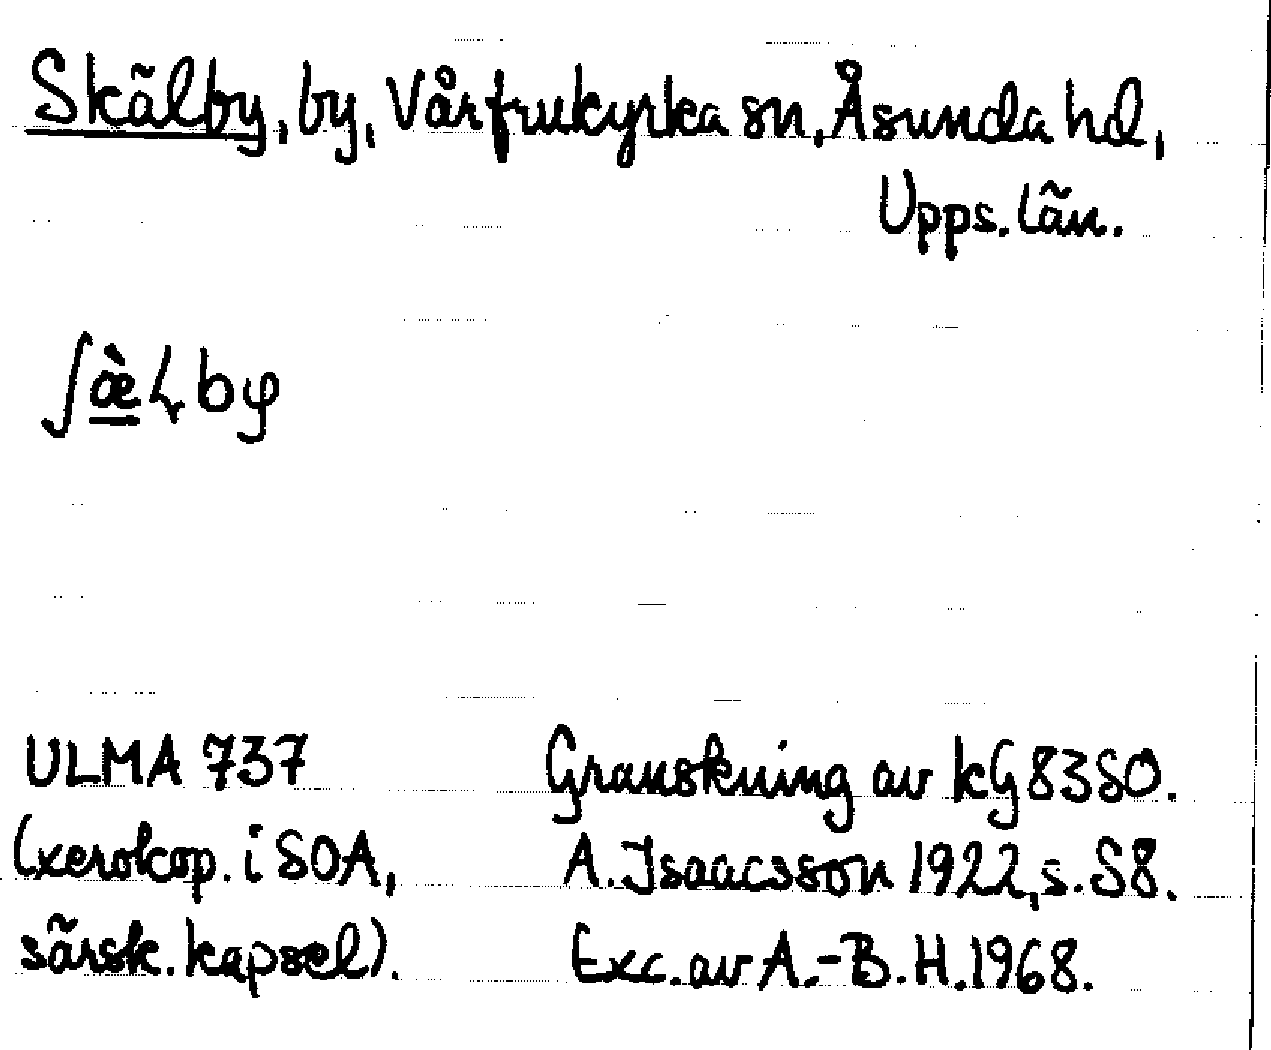 Skälby, by, Vårfrukyrka sn, Åsunda hd,
Upps. län.
ULMA 737
(xerokop. i SOA,
särsk. kapsel).
Granskning av kG 8350.
A. Isaacsson 1922, s. 58.
Exc. av A.-B. H. 1968.